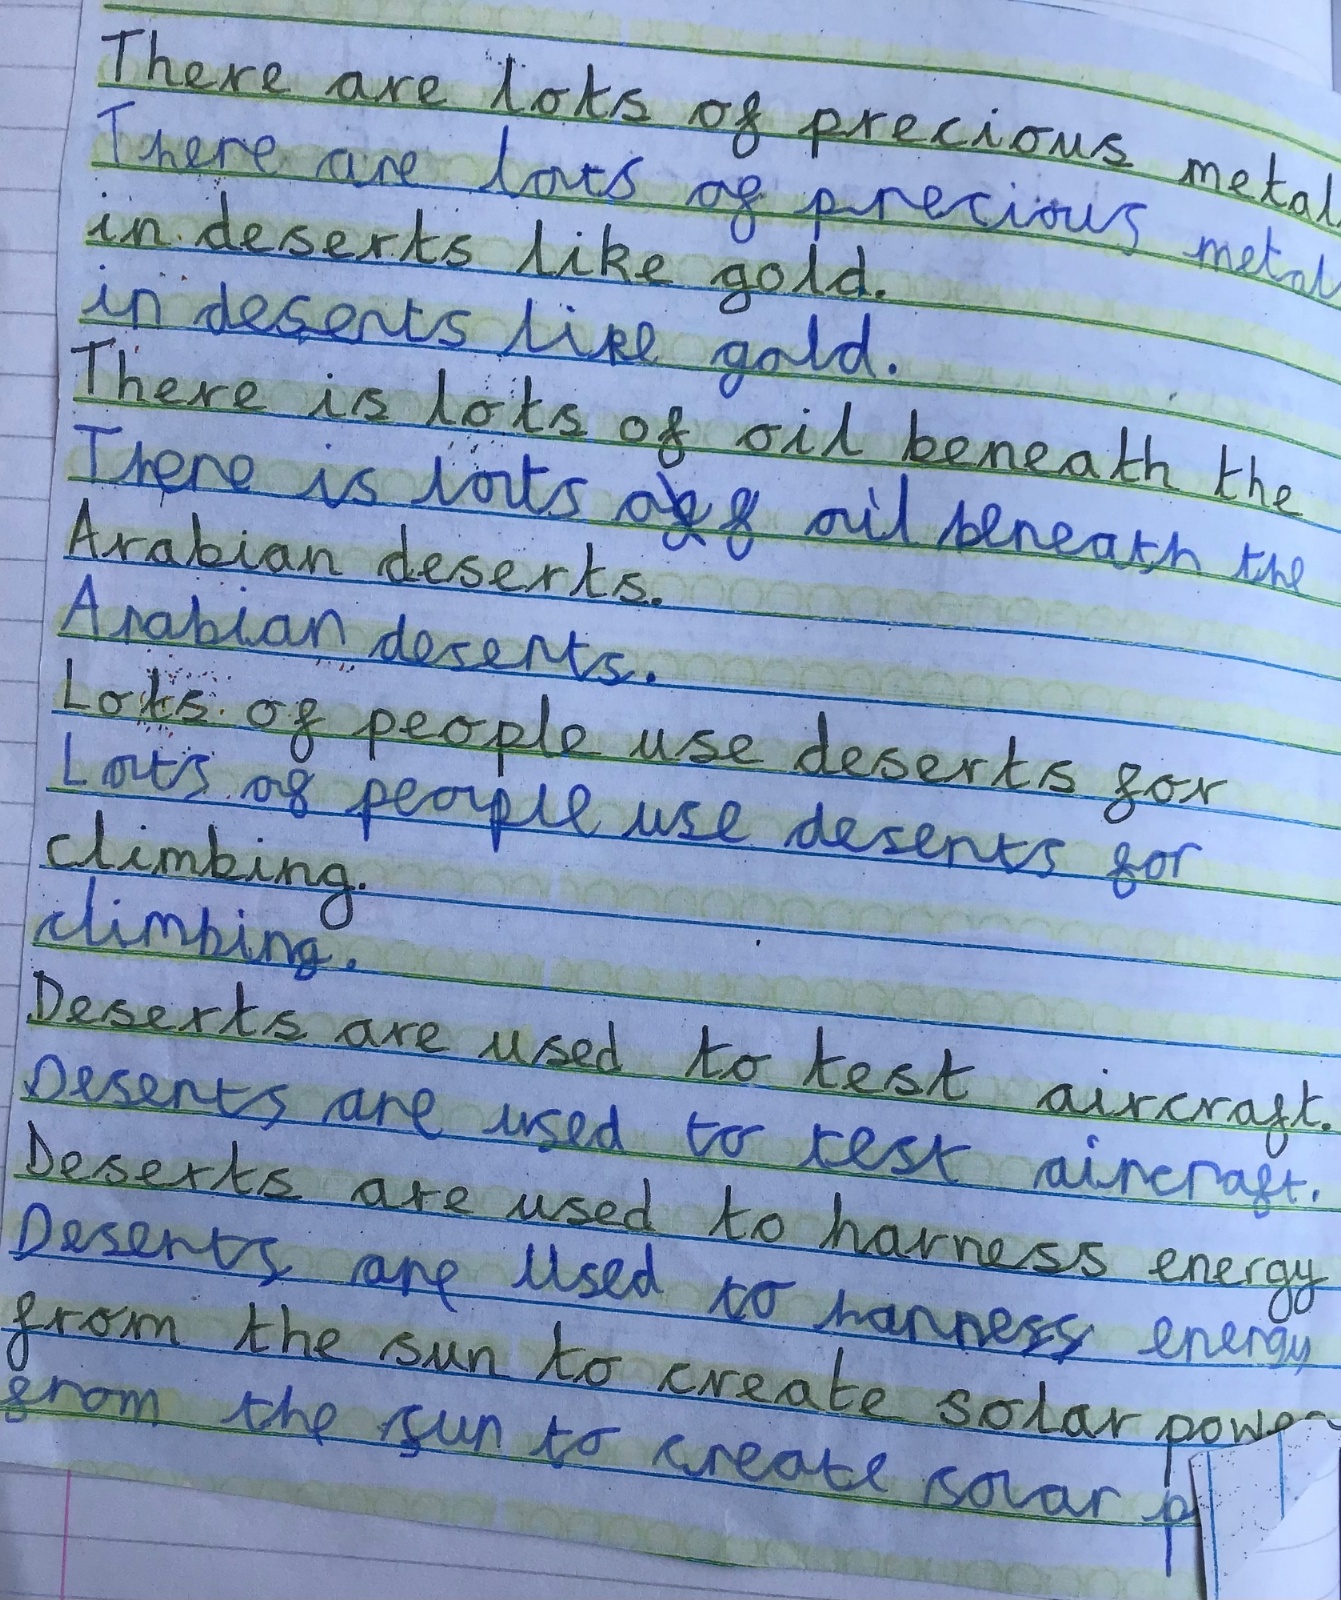 There are lots of precious metal
There are lots of precious metal
in deserts like gold.
in deserts like gold.
There is lots of oil beneath the
There is lots of oil beneath the
Arabian deserts.
Arabian deserts.
Lots of people use deserts for
Lots of people use deserts for
climbing.
climbing.
Deserts are used to test aircraft.
Deserts are used to test aircraft.
Deserts are used to harness energy
Deserts are used to harness energy
from the sun to create solar power
from the sun to create solar p